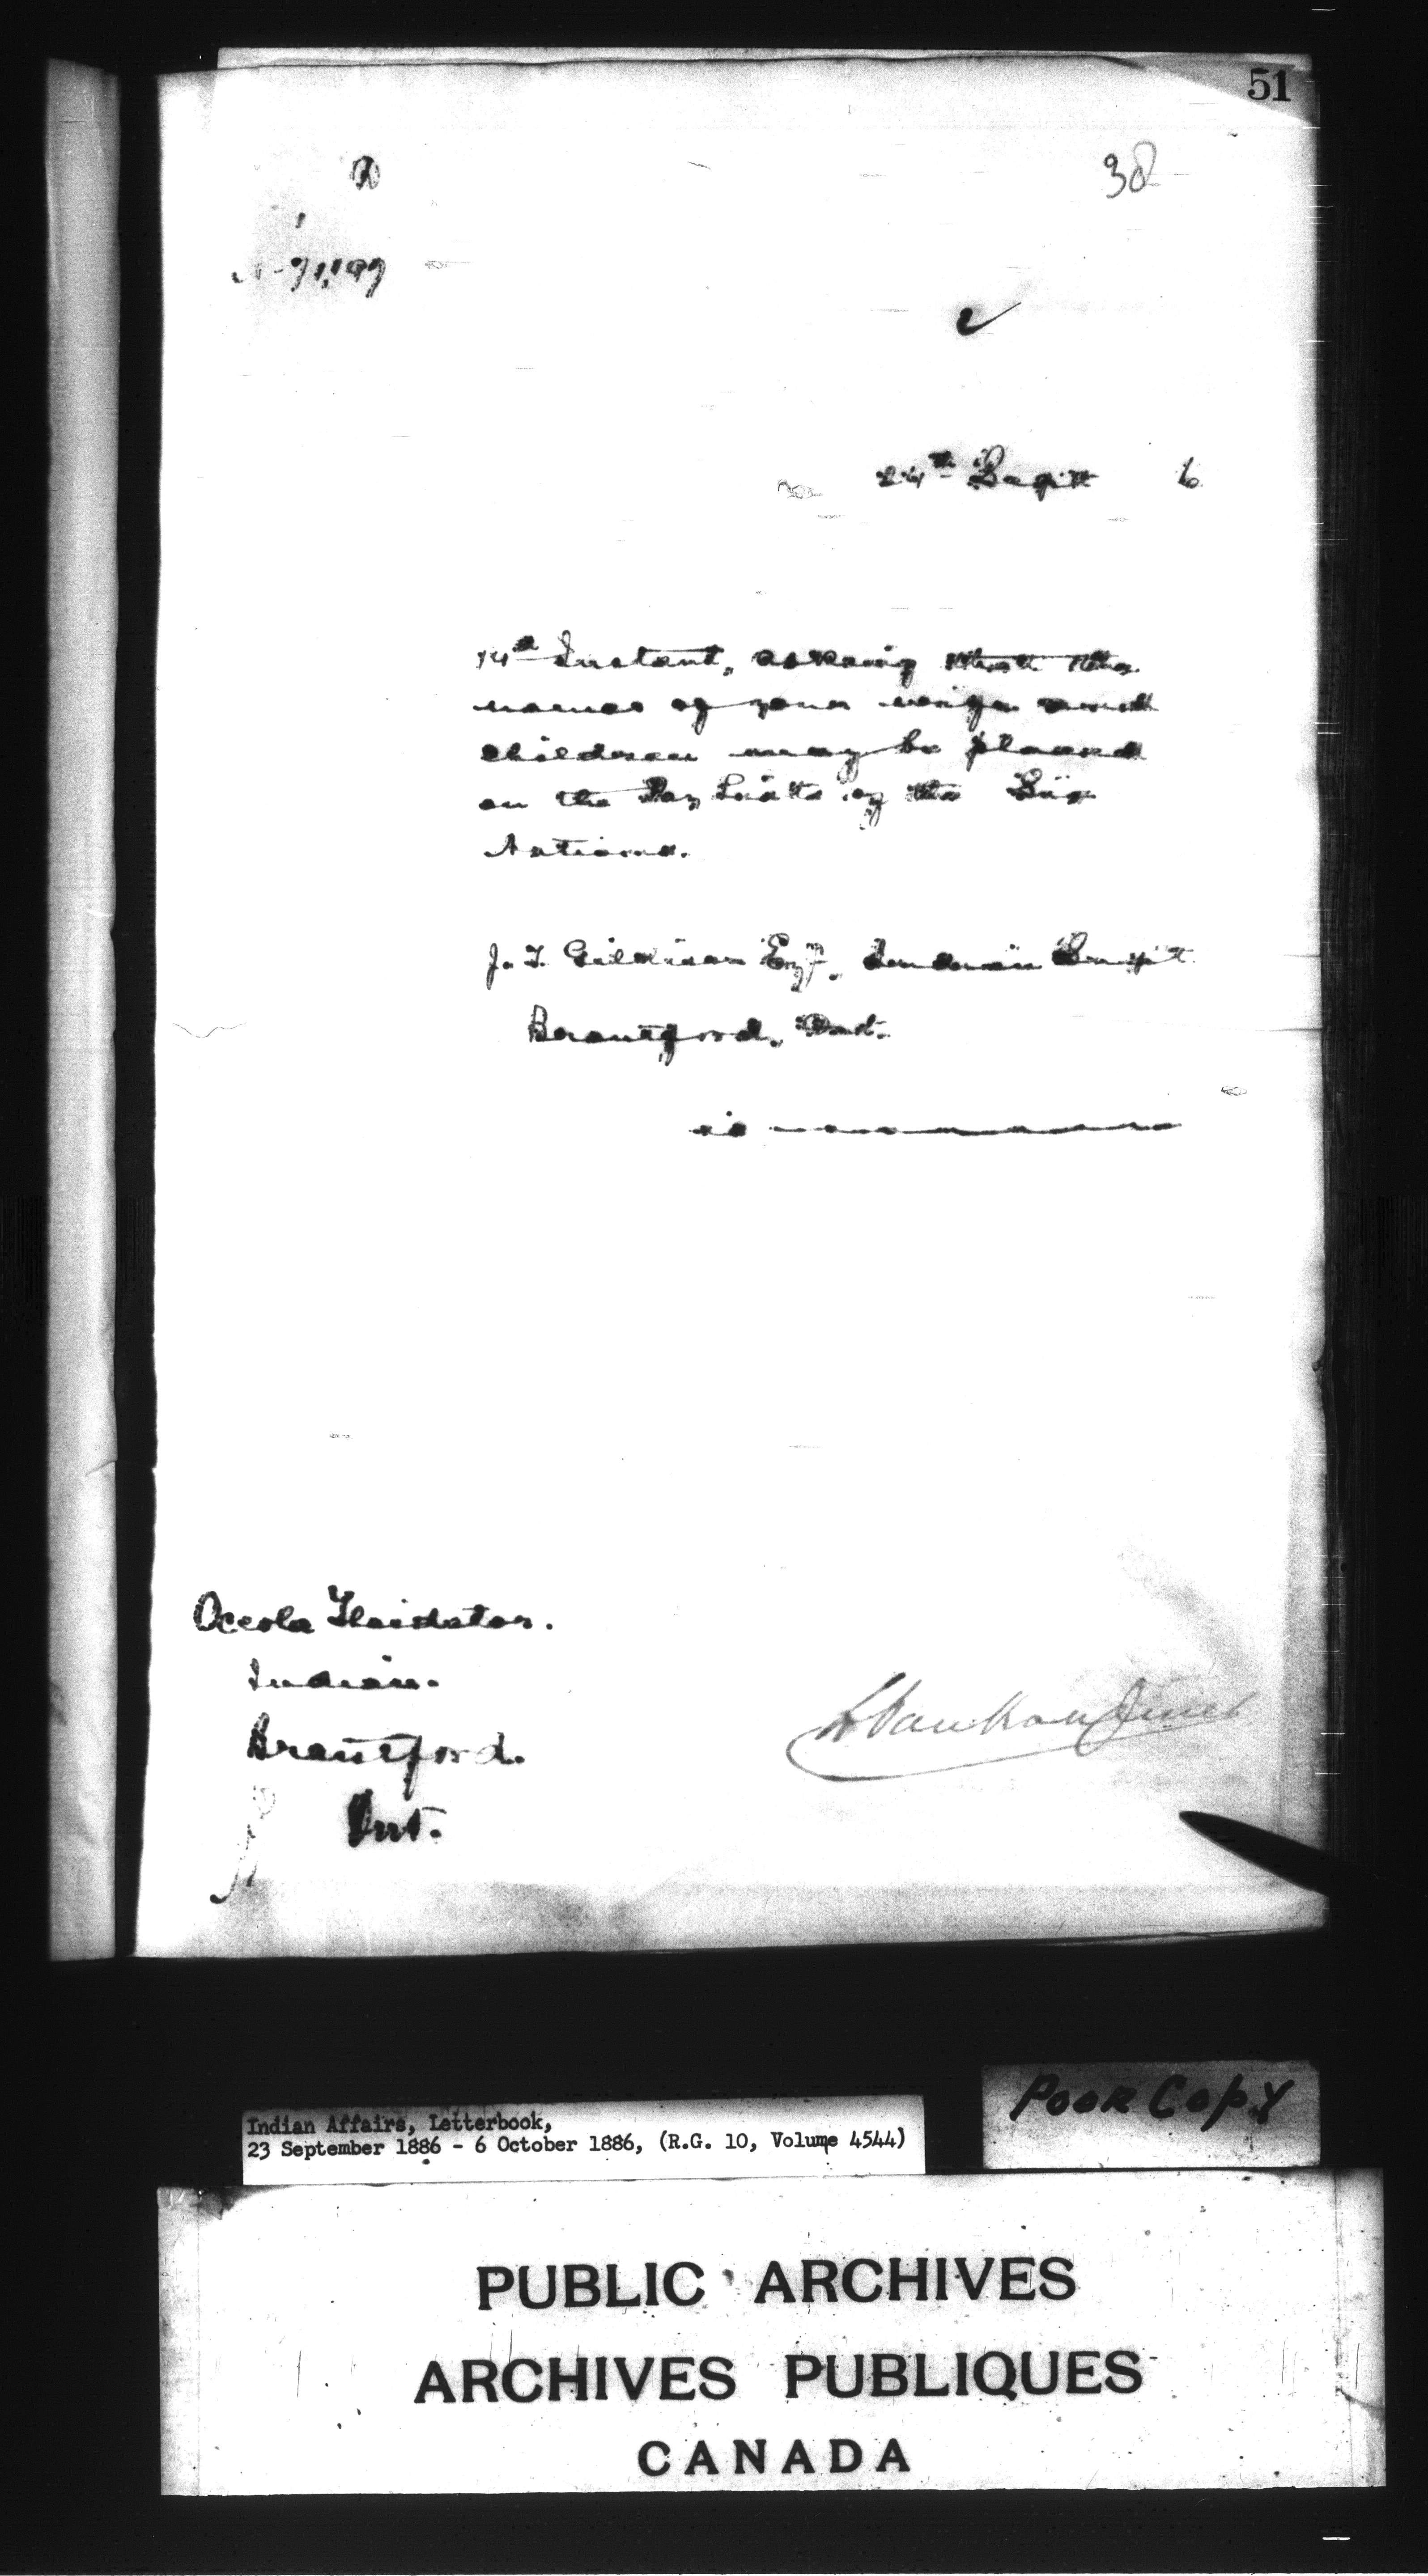 51
38
24th Sept 6
14th Instant, asking that the
names of your wife and
children may be placed
on the Pay Lists of the Six
Nations.
J. T. Gilkison Esq., Indian Supt
Brantford, Ont.
is
Indian.
Brantford.
Ont.
L Vankoughnet
Indian Affairs, Letterbook,
23 September 1886 - 6 October 1886, (R.G. 10, Volume 4544)
Poor Copy
PUBLIC ARCHIVES
ARCHIVES PUBLIQUES
CANADA